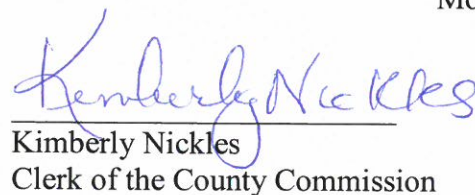 Mo
Kimberly Nickles
Kimberly Nickles
Clerk of the County Commission